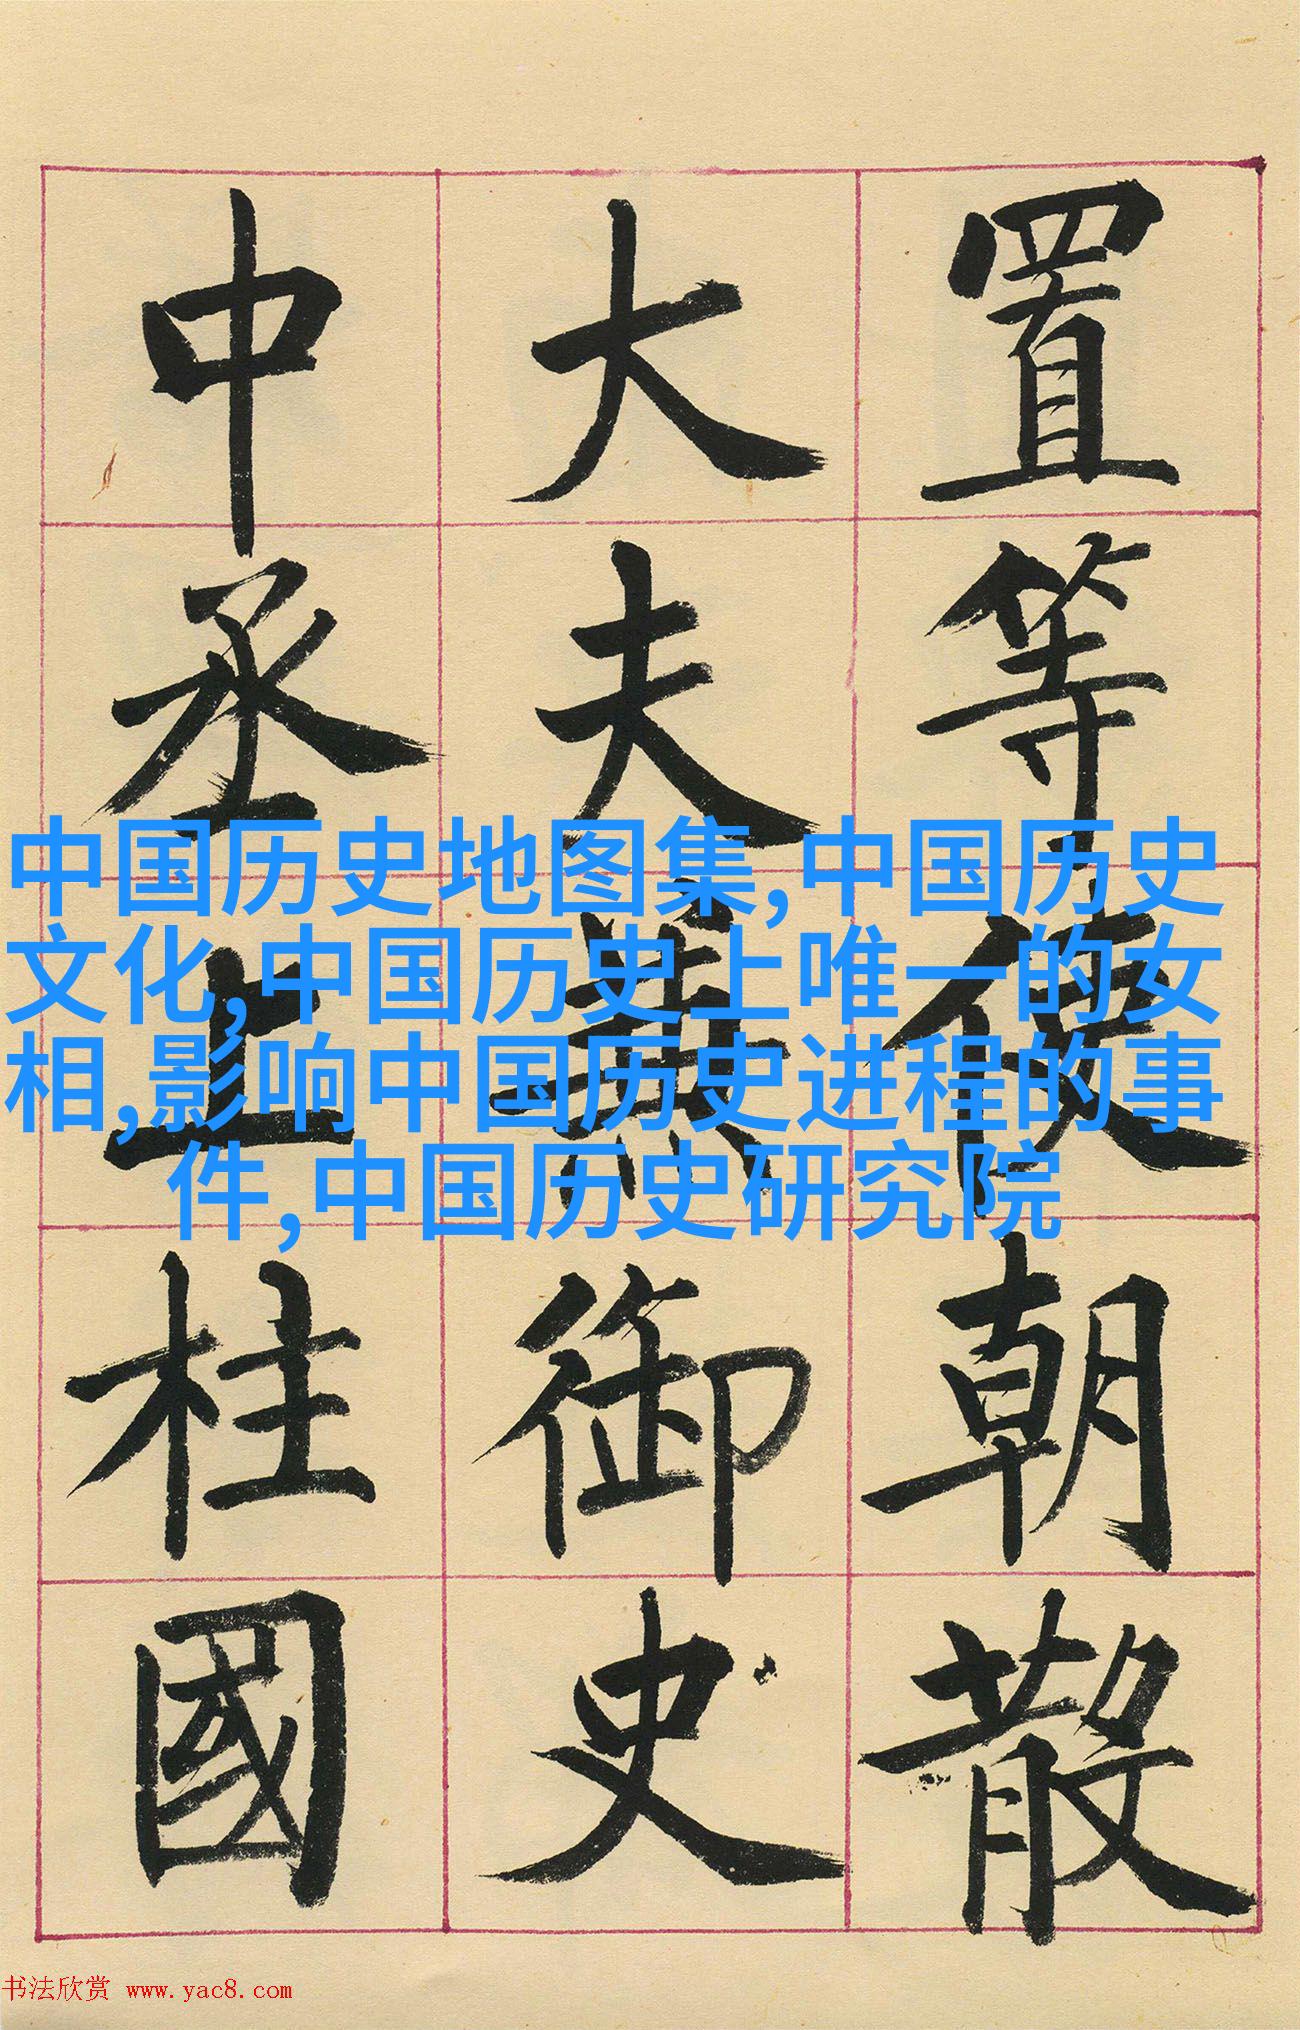 置等使朝散
大夫兼御史
中丞上柱國
中国历史地图集,中国历史
文化,中国历史上唯一的女
相,影响中国历史进程的事
件,中国历史研究院
书法欣赏 www.yac8.com